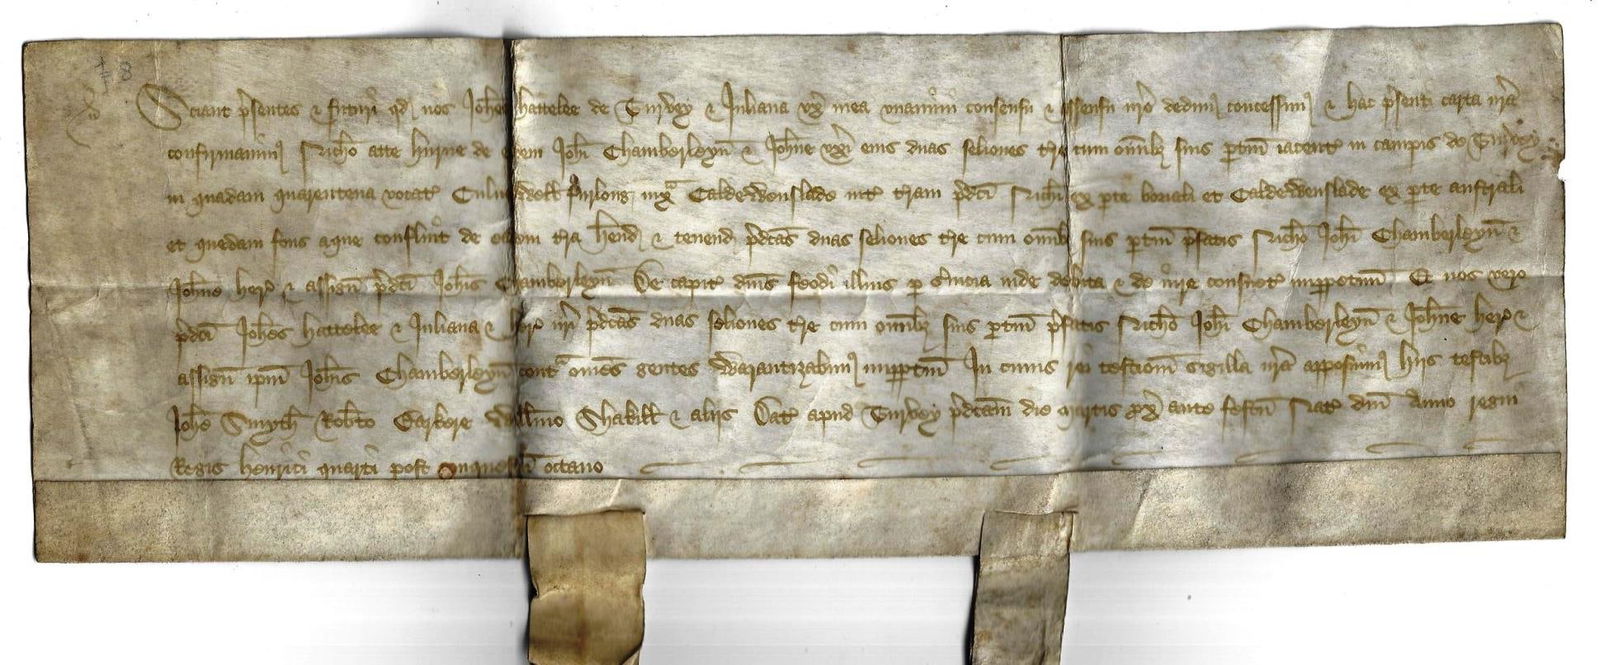 48
Sciant p͛sentes & futur͛ qd̛ nos Joh̅es hattelee de Turvey & Juliana ux̛ mea unanimi consensu & assensu nr̅o dedim̛ concessim̛ & hac p͛senti carta nr̅a
confirmavim̛ Rich̅o atte hurne de eadem Joh̅i Chamberleyn̅ & Joh̅ne uxi̅ eius duas seliones t͛re cum om̅ib̛ suis p̱tin̅ iacent̛ in campis de Turvey
in quadam quarentena vocat̛ furlong iuxᵃ Caldewenslade int̛ t͛ram p͛dc̅i Rich̅i ex p̱te boriali et Caldewenslade ex p̱te australi
et quedam fons aque de eadem t͛ra h̅end̛ & tenend̛ p͛dc̅as duas seliones t͛re cum om̅ib̛ suis p̱tin̅ p͛fatis Rich̅o Joh̅i Chamberleyn̅ &
Joh̅ne her̛ & assign̅ p͛dc̅i Joh̅is Chamberleyn̅ De capit̛ dn̅is feodi illius p̱ s͛vicia inde debita & de iure consuet̛ imp̱petuu̅ Et nos vero
p͛dc̅i Joh̅es hattelee & Juliana & her̛ nr̅i p͛dc̅as duas seliones t͛re cum om̅ib̛ suis p̱tin̅ p͛fatis Rich̅o Joh̅i Chamberleyn̅ & Joh̅ne her̛ &
assign̅ ip̅ius Joh̅is Chamberleyn̅ contᵃ om̅es gentes Warantizabim̛ imp̱p̱tuu̅ In cuius rei testimoniu̅ sigilla nr̅a apposuim̛ hiis testib̛
Joh̅e Smyth Rob̅to Barkere Will̅mo Shakill & aliis Dat̛ apud Turvey p͛dc̅am die martis px̅ ante festu̅ Nat̛ dn̅i Anno regni
Regis henrici quarti post conquestu̅ octavo